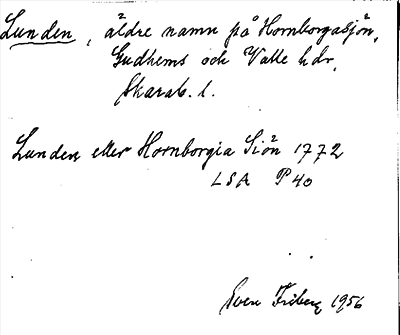 Lunden, äldre namn på Hornborgasjön,
Gudhems och Valle hdr,
Skarab. l.
Lunden eller Hornborgia Siön 1772
LSA P 40
Sven Friberg 1956